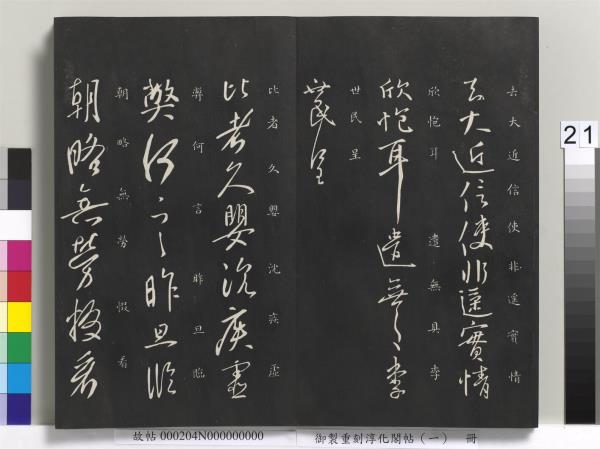 去大近信使非遥實情
去大近信使非遥實情
欣悒耳遣無具李
欣悒耳遣無具李
世民呈
世民呈
比者久嬰沈疾虛
比者久嬰沈疾虛
弊何言昨旦臨
弊何言昨旦臨
朝略無勞看
朝略無勞看
21
故帖 000204N000000000
御製重刻淳化閣帖(一) 冊